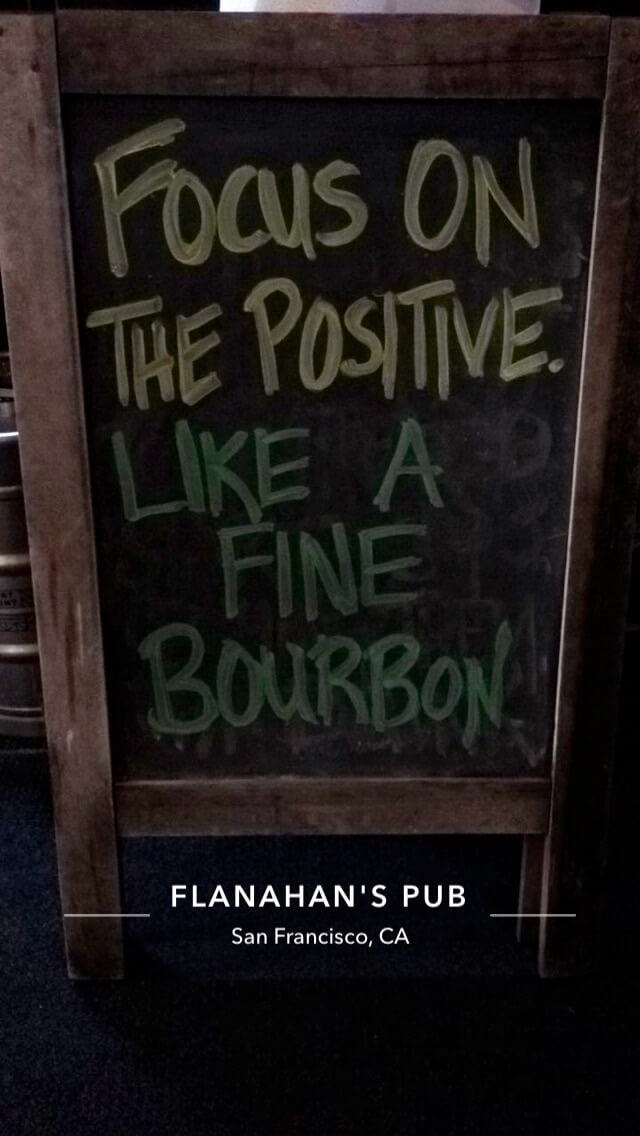 FOCUS ON
THE POSITIVE.
LIKE A
FINE
BOURBON
FLANAHAN'S PUB
San Francisco, CA